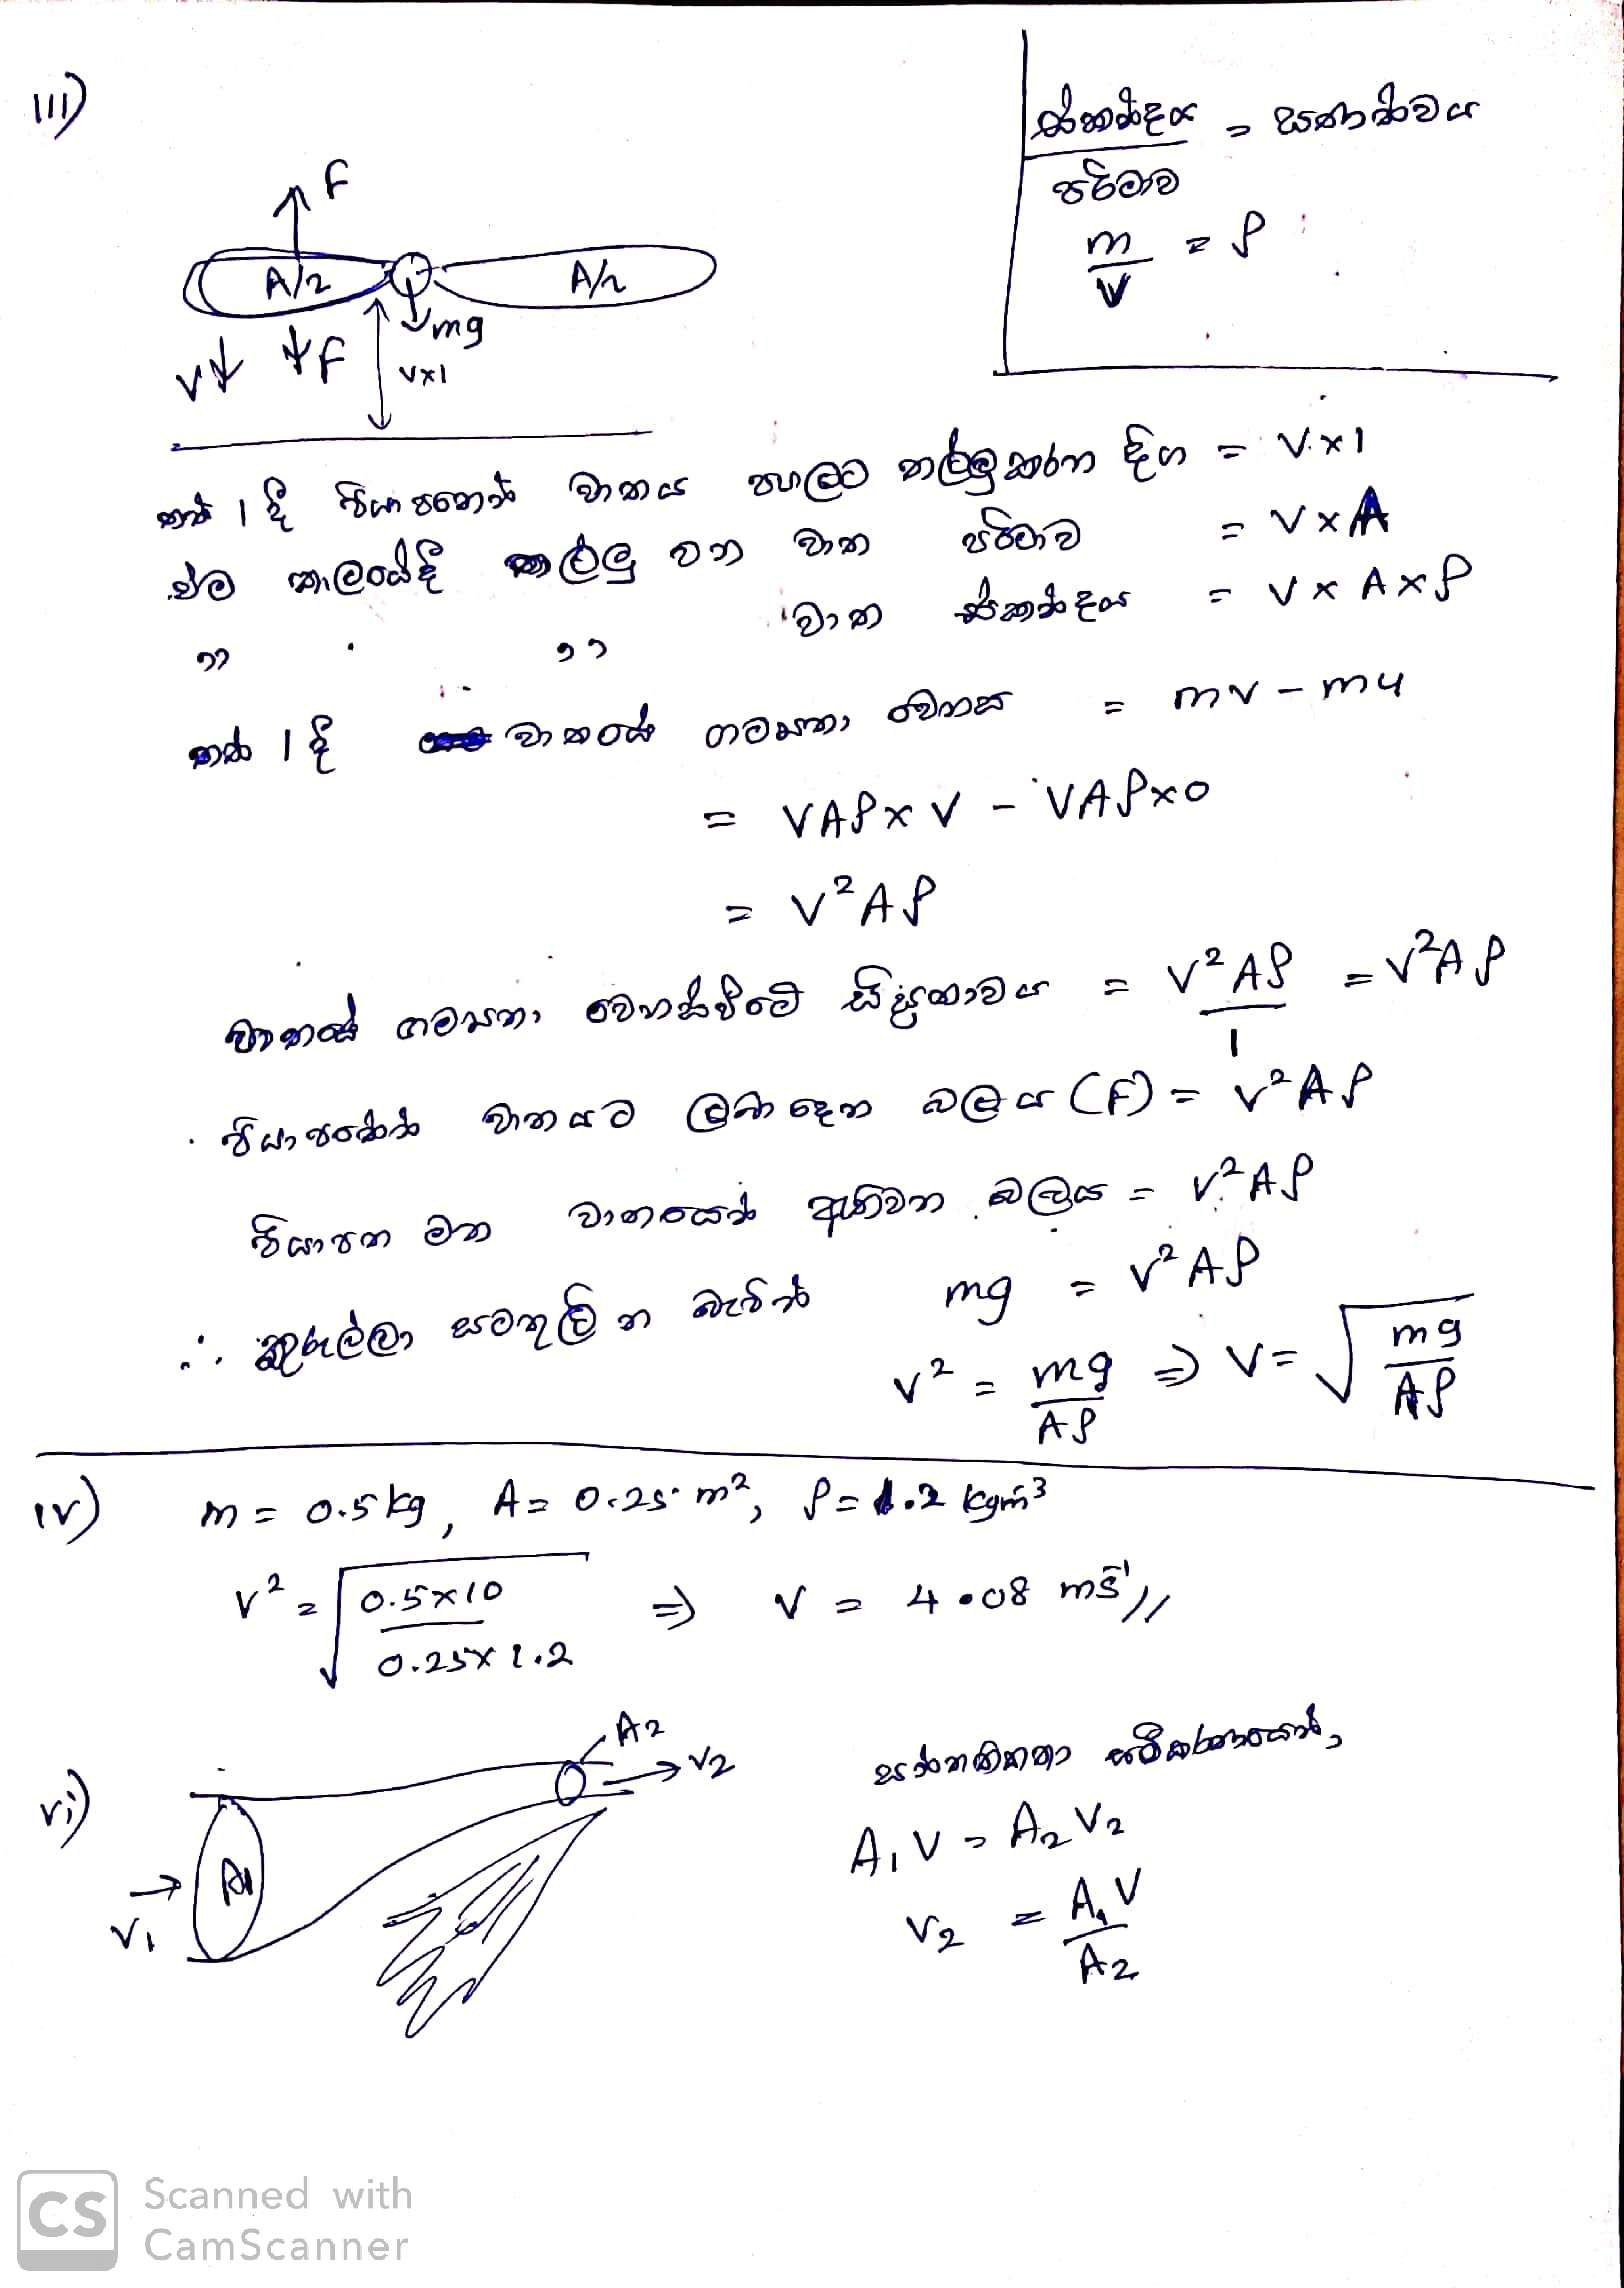 iii)
ස්කන්ධය = ඝණත්වය
පරිමාව
m/V = ρ
F
A/2 A/2
mg
V F V×1
තත් 1 දී පියාපතෙන් වාතය පහලට තල්ලුකරන දිග = V×1
එම කාලයේදී තල්ලු වන වාත පරිමාව = V×A
,, ,, වාත ස්කන්දය = V×A×ρ
තත් 1 දී වාතයේ ගම්‍යතා වෙනස = mv - mu
= VAρ×V - VAρ×0
= V²Aρ
වාතයේ ගම්‍යතා වෙනස්වීමේ සීඝ්‍රතාවය = V²Aρ/1 = V²Aρ
පියාපතෙන් වාතයට ලබා දෙන බලය (F) = V²Aρ
පියාපත මත වාතයෙන් ඇතිවන බලය = V²Aρ
∴ කුරුල්ලා සමතුලිත බැවින් mg = V²Aρ
V² = mg/Aρ ⇒ V = √(mg/Aρ)
iv) m = 0.5 kg, A = 0.25 m², ρ = 1.2 kgm⁻³
V² = √(0.5×10/0.25×1.2) ⇒ V = 4.08 ms⁻¹//
vi) A2 V2
A1
V1
සන්තතිකතා සමීකරණයෙන්,
A₁V = A₂V₂
V₂ = A₁V/A₂
CS Scanned with
CamScanner